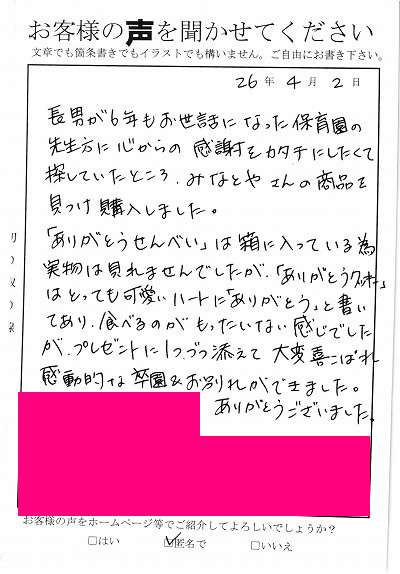 お客様の声を聞かせてください
文章でも箇条書きでもイラストでも構いません。ご自由にお書き下さい。
26年4月2日
長男が6年もお世話になった保育園の
先生方に心からの感謝をカタチにしたくて
探していたところ、みなとやさんの商品を
見つけ購入しました。
「ありがとうせんべい」は箱に入っている為
実物は見れませんでしたが、「ありがとうクッキー」
はとっても可愛いハートに「ありがとう」と書い
てあり、食べるのがもったいない感じでした
が、プレゼントに1つづつ添えて大変喜こばれ
感動的な卒園&お別れができました。
ありがとうございました。
お客様の声をホームページ等でご紹介してよろしいでしょうか?
□はい ☑匿名で □いいえ